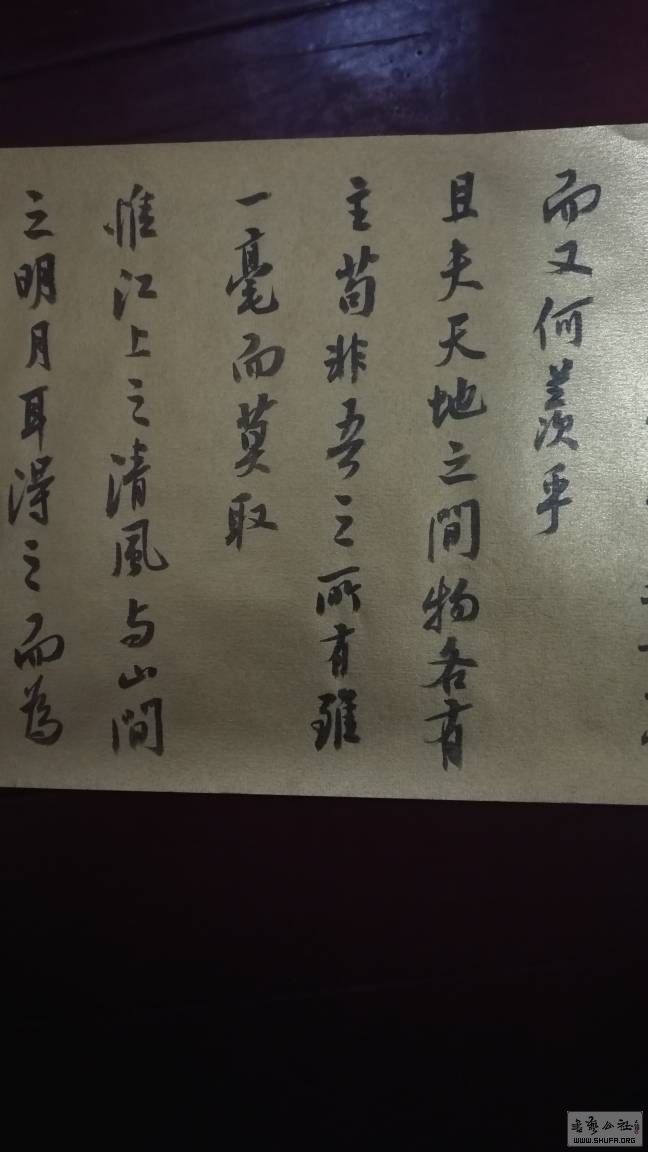 而又何羨乎
且夫天地之間物各有
主苟非吾之所有雖
一毫而莫取
惟江上之清風与山間
之明月耳得之而為
WWW.SHUFA.ORG